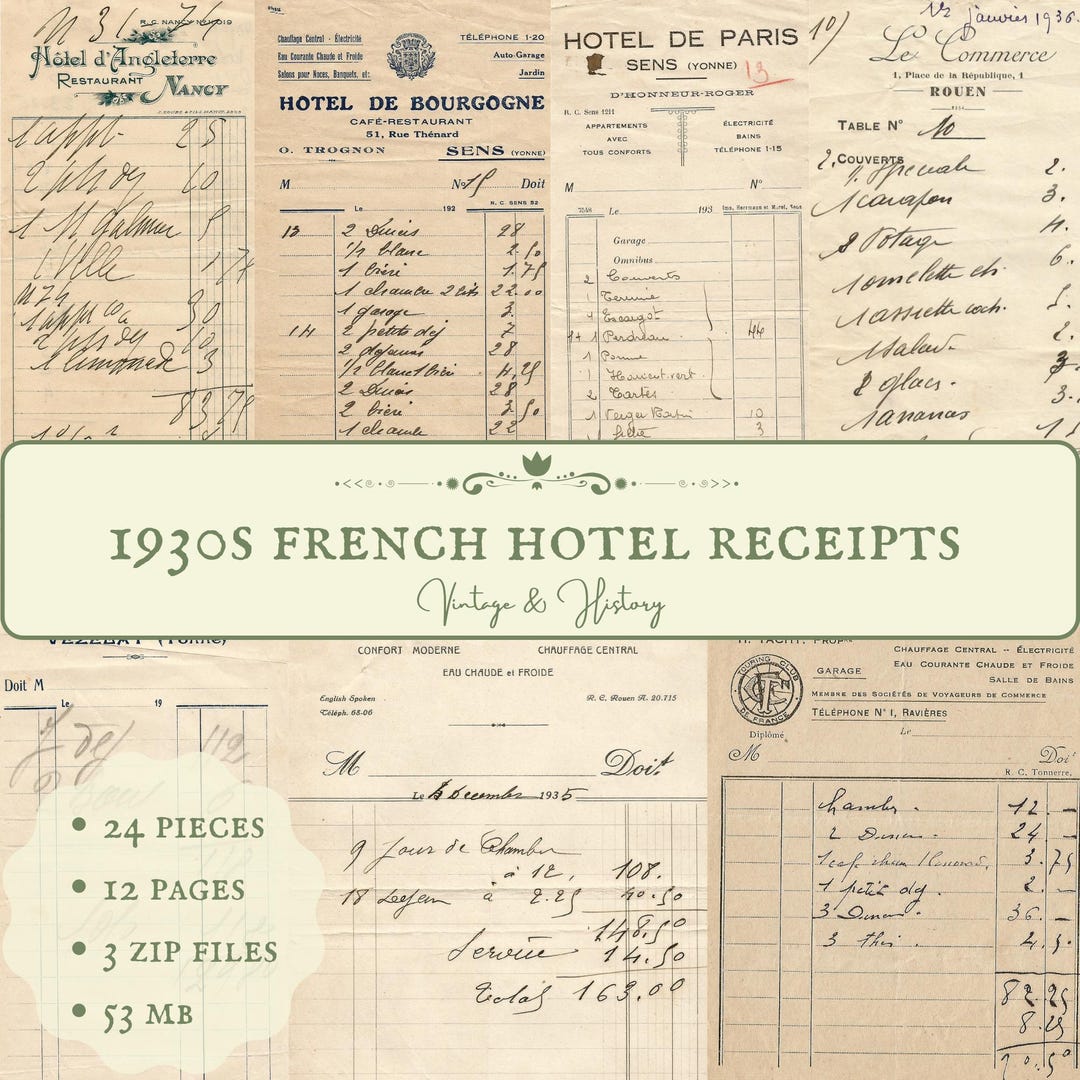 R. C. NANCY N° 11019
Hôtel d'Angleterre
RESTAURANT NANCY
1 appt 25
2 pts dej 10
1 limonade 3
83,75
Chauffage Central - Électricité
Eau Courante Chaude et Froide
Salons pour Noces, Banquets, etc.
TÉLÉPHONE 1-20
Auto-Garage
Jardin
HOTEL DE BOURGOGNE
CAFÉ-RESTAURANT
51, Rue Thénard
O. TROGNON SENS (YONNE)
M N° 15 Doit
Le 192 R. C. SENS 52
13 2 Diners 28
1/2 blanc 2.50
1 bière 1.75
1 chambre 2 lits 22.00
1 garage 3.
14 2 petits dej 7
2 dejeuners 28
1/2 blanc 1 bière 4,25
2 Diners 28
2 bière 3.50
1 chambre 22
HOTEL DE PARIS
SENS (YONNE)
13
D'HONNEUR-ROGER
R. C. Sens 1211
APPARTEMENTS
AVEC
TOUS CONFORTS
ÉLECTRICITÉ
BAINS
TÉLÉPHONE 1-15
M N°
7548 Le 193
Garage
Omnibus
2 Couverts
1 Terrine
Escargot
1 Perdreau 44
1 Pomme
1 Haricot vert
2 Tartes
1 10
1 filtre 3
10) 1/2 janvier 1936
Le Commerce
1, Place de la République, 1
ROUEN
TABLE N° 10
2. COUVERTS 2.
1 carafon 3.
2 Potage 4.
1 omelette ch. 6.
1 assiette coch.
1 Salade 2.
2 glaces. 3.
1 ananas
1930S FRENCH HOTEL RECEIPTS
Vintage & History
VÉZELAY (YONNE)
Doit M
Le 19
dej 112
• 24 PIECES
• 12 PAGES
• 3 ZIP FILES
• 53 MB
CONFORT MODERNE CHAUFFAGE CENTRAL
EAU CHAUDE et FROIDE
English Spoken
Téléph. 68-06
R. C. Rouen A. 20.715
M Doit
Le 4 Decembre 1935
9 Jour de Chambre
à 12, 108.
18 Dejeun à 2.25 40.50
148,50
Service 14.50
Total 163.00
H. YACHT, PROP.re
CHAUFFAGE CENTRAL -- ÉLECTRICITÉ
EAU COURANTE CHAUDE ET FROIDE
SALLE DE BAINS
GARAGE
MEMBRE DES SOCIÉTÉS DE VOYAGEURS DE COMMERCE
TÉLÉPHONE N° 1, RAVIÈRES
TOURING CLUB
DE FRANCE
Diplômé
Le
M Doit
R. C. Tonnerre.
chambre. 12. —
2 Diners. 24 —
3.75
1 petit dej. 2. —
3 Diners. 36. —
3 thés 4.50
82.25
8.25
90.50